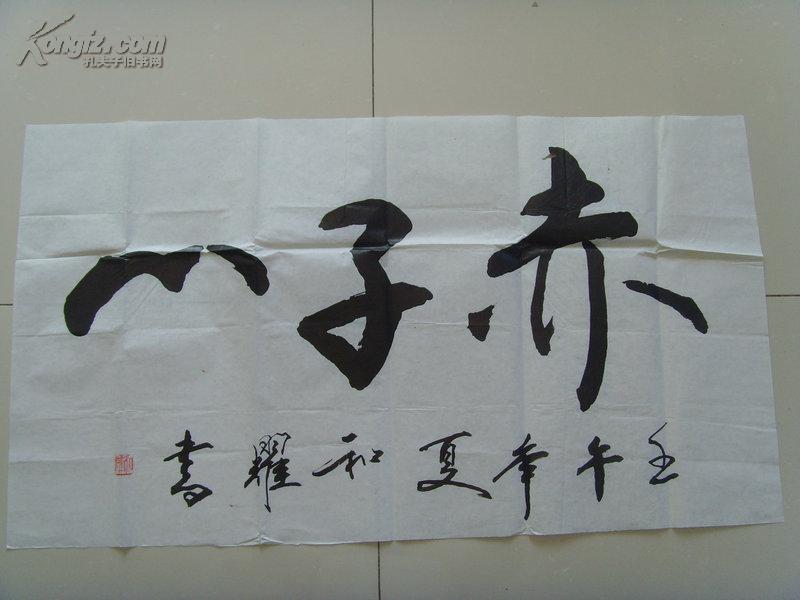 Kongfz.com
孔夫子旧书网
赤子心
壬午年夏和耀書